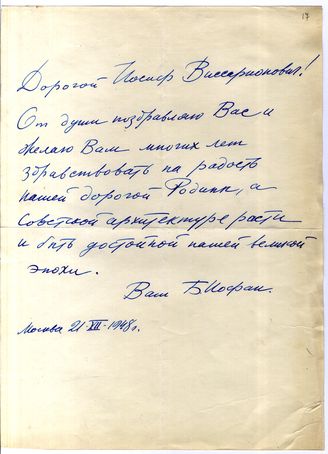 17
Дорогой Иосиф Виссарионович!
От души поздравляю Вас и
желаю Вам многих лет
здравствовать на радость
нашей дорогой Родине, а
Советской архитектуре расти
и быть достойной нашей великой
эпохи.
Ваш Б Иофан.
Москва 21-XII-1948г.